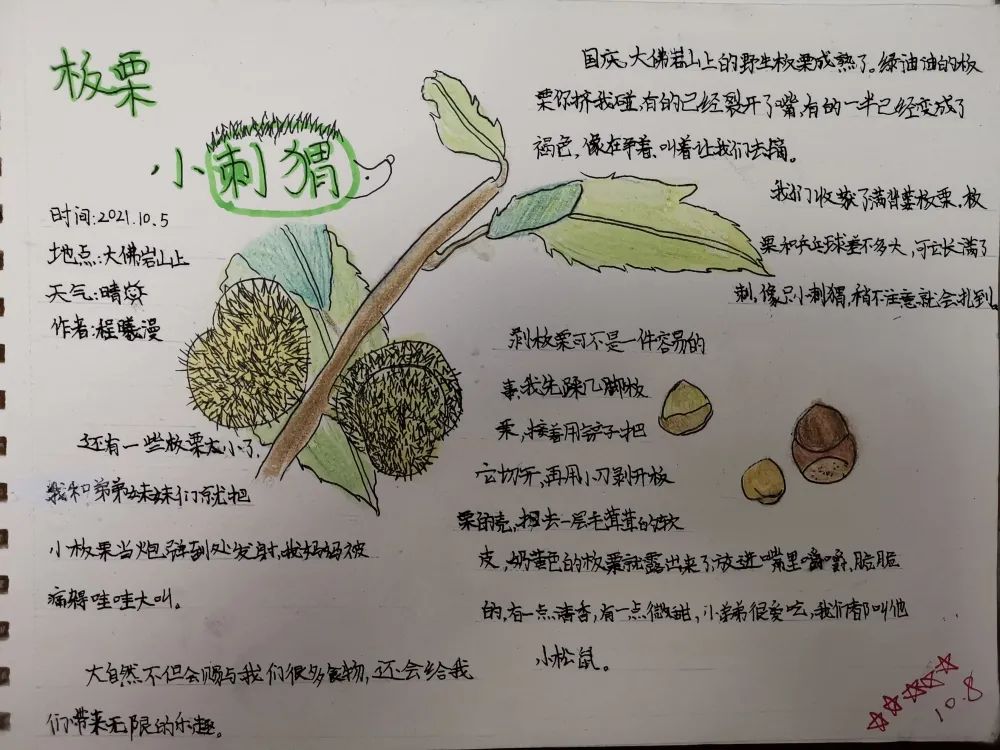 板栗
小刺猬
时间:2021.10.5
地点:大佛岩山上
天气:晴
作者:程曦漫
国庆,大佛岩山上的野生板栗成熟了。绿油油的板
栗你挤我碰,有的已经裂开了嘴,有的一半已经变成了
褐色,像在呼着、叫着让我们去摘。
我们收获了满背篓板栗,板
栗和乒乓球差不多大,可它长满了
刺,像只小刺猬,稍不注意就会扎到。
剥板栗可不是一件容易的
事,我先踩几脚板
栗,接着用剪子把
它切开,再用小刀剥开板
栗的壳,抠去一层毛茸茸的软
皮,奶黄色的板栗就露出来了,放进嘴里嚼嚼,脆脆
的,有一点清香,有一点微甜,小弟弟很爱吃,我们都叫他
小松鼠。
还有一些板栗太小了,
我和弟弟妹妹们就把
小板栗当炮弹到处发射,我妈妈被
痛得哇哇大叫。
大自然不但会赐与我们很多食物,还会给我
们带来无限的乐趣。
10.8